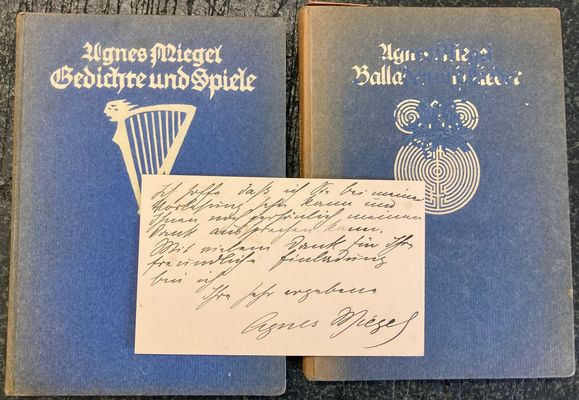 Agnes Miegel
Gedichte und Spiele
Agnes Miegel
Ich hoffe daß ich Sie bei meiner
Vorlesung sehn kann und
Ihnen noch persönlich meinen
Dank aussprechen kann.
Mit vielem Dank für Ihre
freundliche Einladung
bin ich
Ihre sehr ergebene
Agnes Miegel